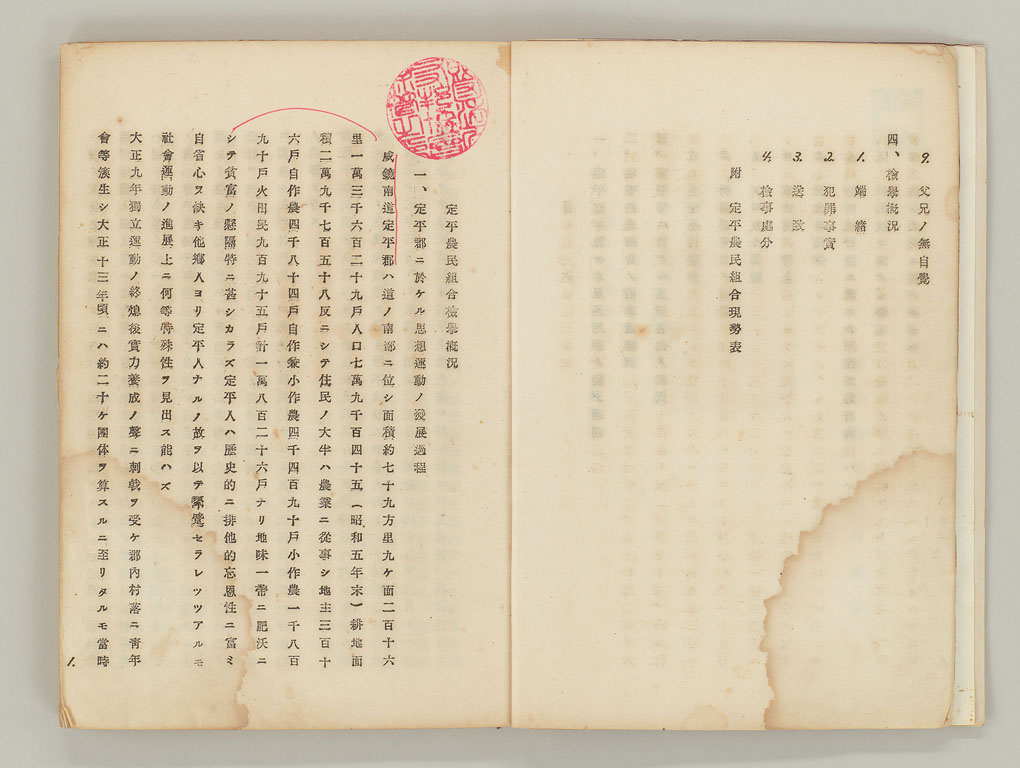 9. 父兄ノ無自覺
四、檢擧槪況
1. 端緖
2. 犯罪事實
3. 送致
4. 檢事處分
附 定平農民組合現勢表
定平農民組合檢擧槪況
一、定平郡ニ於ケル思想運動ノ發展過程
咸鏡南道定平郡ハ道ノ南部ニ位シ面積約七十九方里九ケ面二百十六
里一萬三千六百二十九戶人口七萬九千百四十五(昭和五年末)耕地面
積二萬九千七百五十八反ニシテ住民ノ大半ハ農業ニ從事シ地主三百十
六戶自作農四千八十四戶自作兼小作農四千四百九十戶小作農一千八百
九十戶火田民九百九十五戶計一萬八百二十六戶ナリ地味一帶ニ肥沃ニ
シテ貧富ノ懸隔特ニ甚シカラズ定平人ハ歷史的ニ排他的忘恩性ニ富ミ
自省心ヲ缺キ他鄕人ヨリ定平人ナルノ故ヲ以テ顰蹙セラレツツアルモ
社會運動ノ進展上ニ何等特殊性ヲ見出ス能ハズ
大正九年獨立運動ノ終熄後實力養成ノ聲ニ刺戟ヲ受ケ郡內村落ニ靑年
會等簇生シ大正十三年頃ニハ約二十ケ團体ヲ算スルニ至リタルモ當時
1.